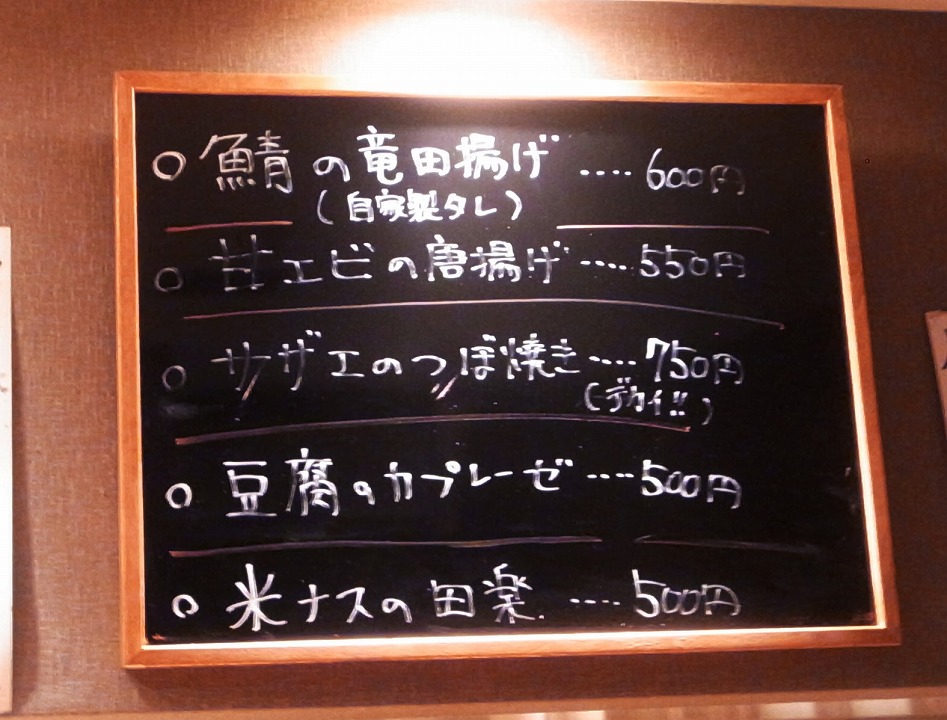 ○ 鯖の竜田揚げ ‥‥ 600円
(自家製タレ)
○ 甘エビの唐揚げ ‥‥ 550円
○ サザエのつぼ焼き ‥‥ 750円
(デカイ!!)
○ 豆腐のカプレーゼ ‥‥ 500円
○ 米ナスの田楽 ‥‥ 500円